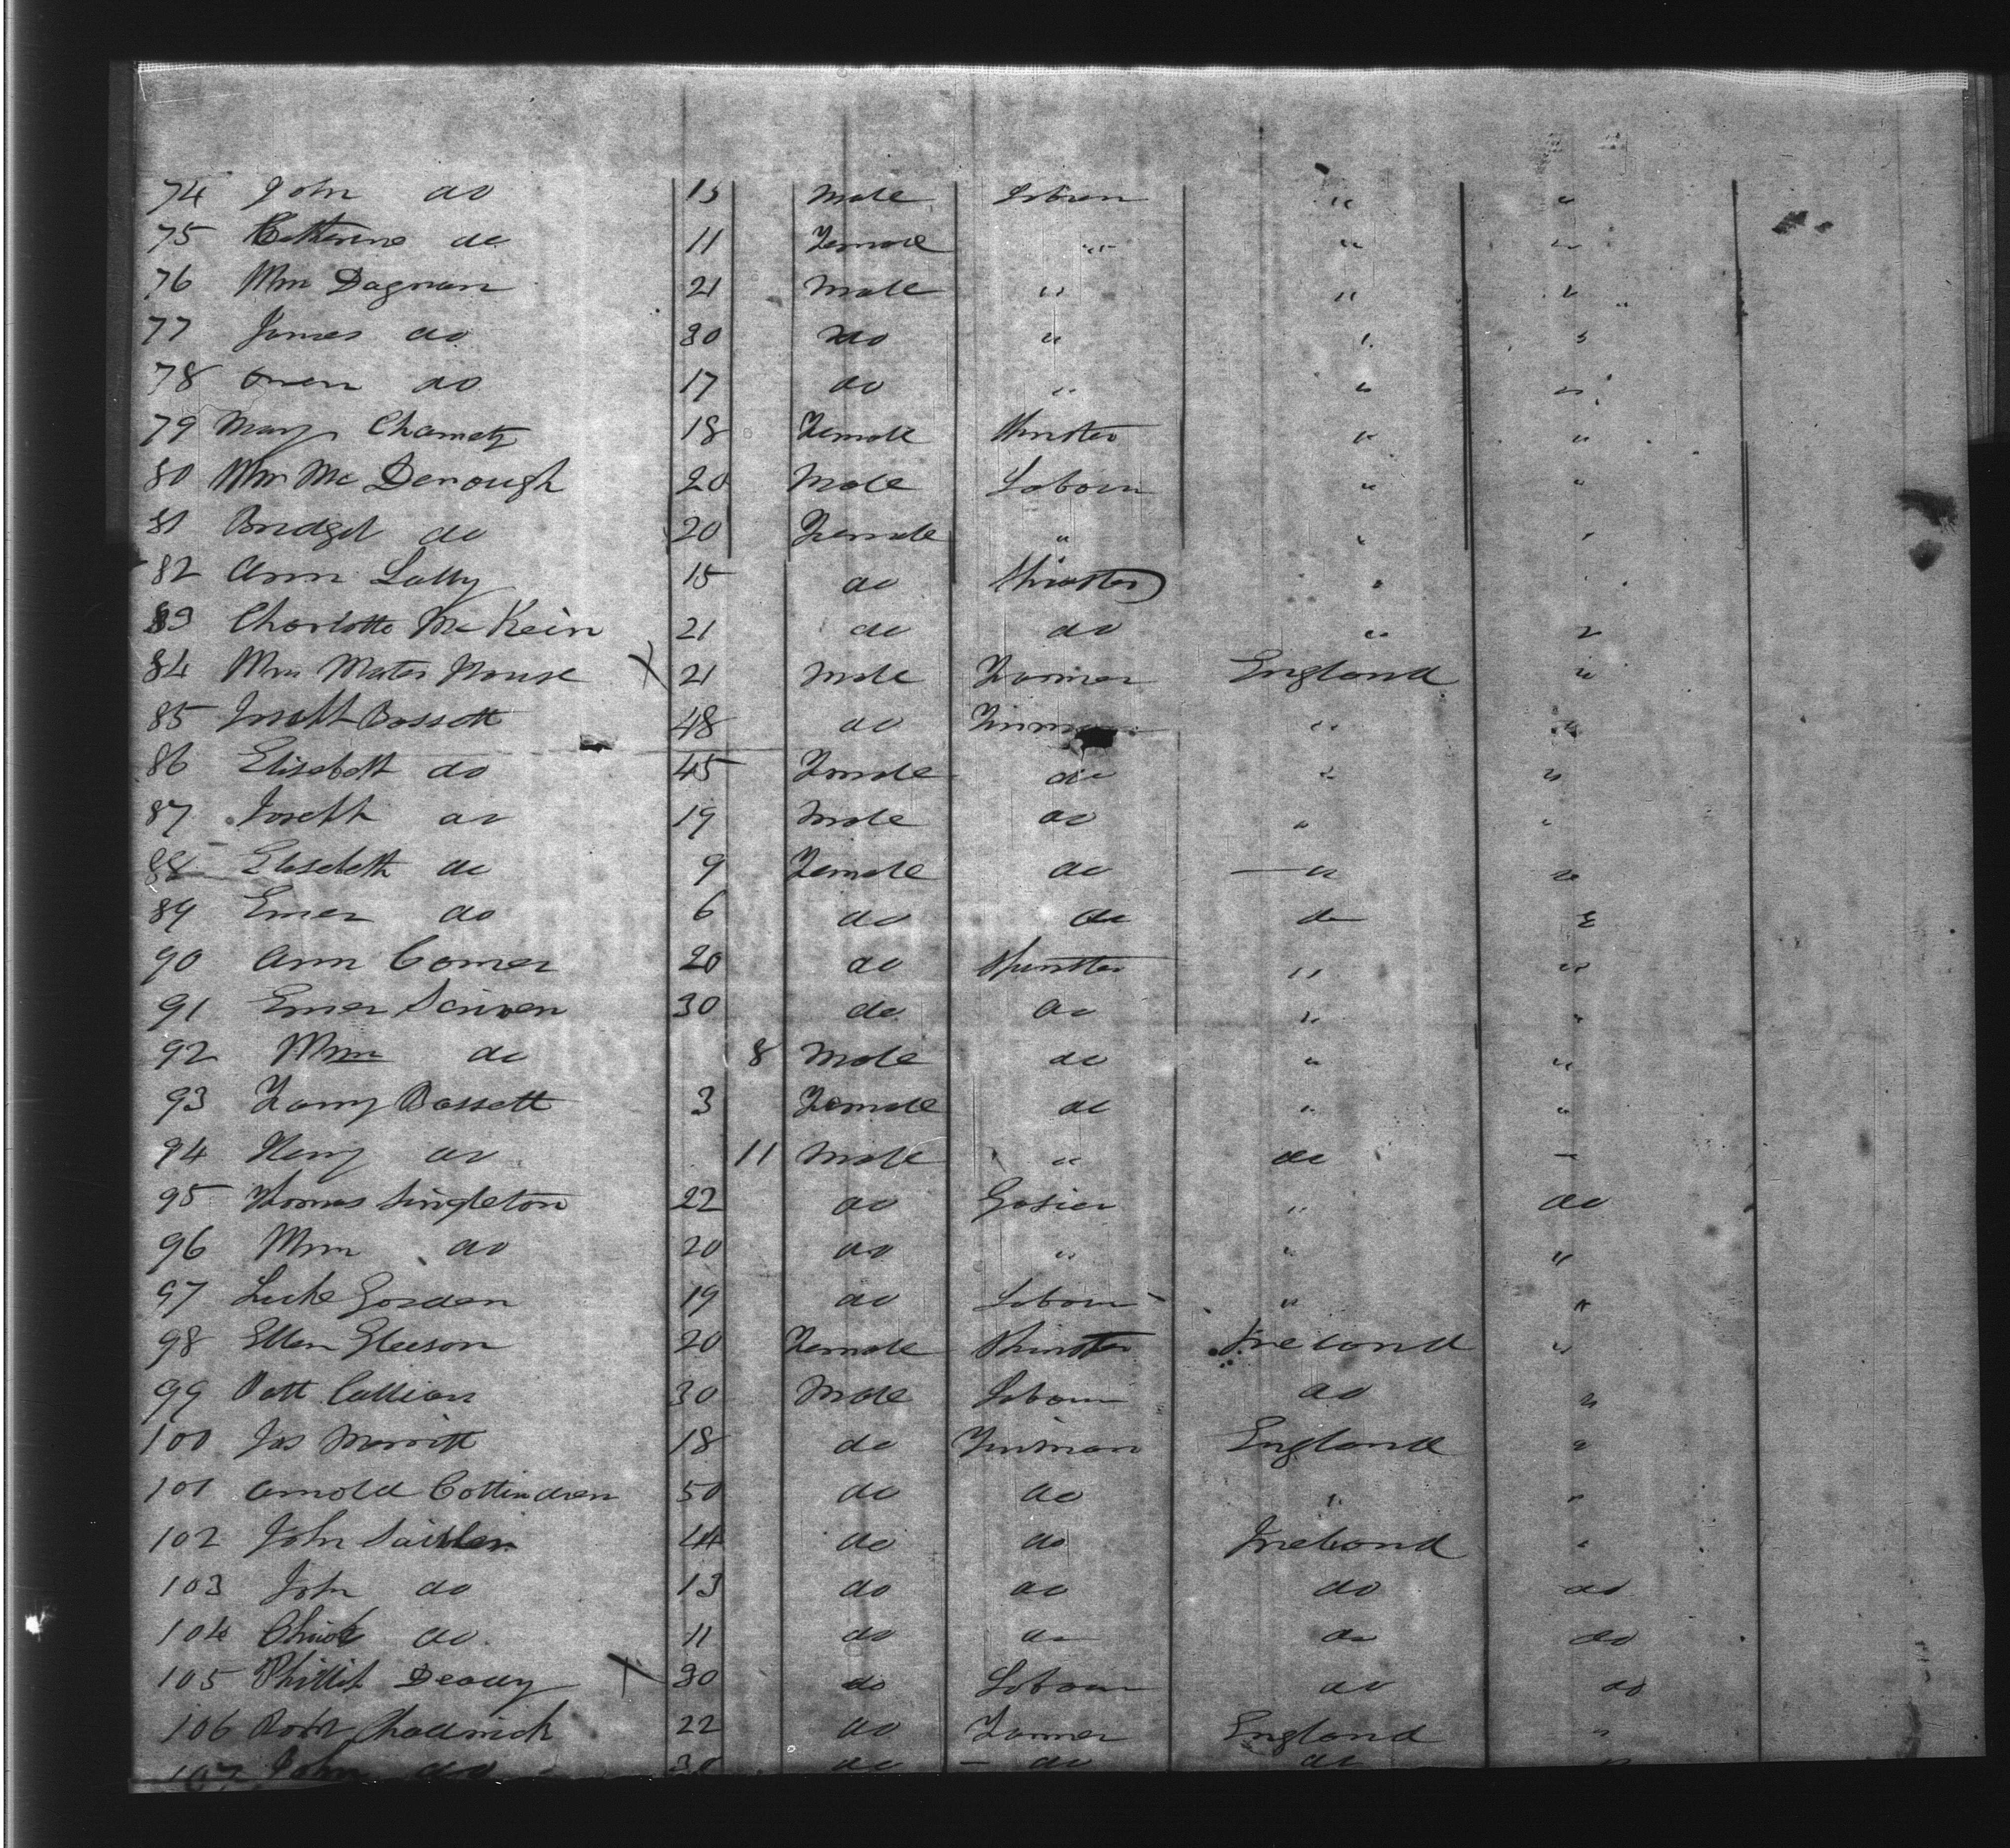 74 John do 13 Male Labour " "
75 Catherine do 11 Female " " "
76 Wm Dagnan 21 Male " " "
77 James do 30 do " " "
78 Owen do 17 do " " "
79 Mary 18 Female " "
80 Wm Mc Donough 20 Male Labour " "
81 Bridget do 20 Female " " "
82 Ann Lally 15 do "
83 Charlotte McKein 21 do do " "
84 Wm Water House X 21 Male Farmer England "
85 Joseph Bassett 48 do " "
86 Elisabeth do 45 Female do " "
87 Joseph do 19 Male do " "
88 Elisabeth do 9 Female do " "
89 Emer do 6 do do do "
90 Ann Comer 20 do " "
91 Emer Scriven 30 do do " "
92 Wm do 8 Male do " "
93 Fanny Bassett 3 Female do " "
94 Henry do 11 Male " do
95 Thomas Singleton 22 do " do
96 Wm do 20 do " " "
97 Luke Gorden 19 do Labour " "
98 Ellen Gleeson 20 Female Ireland "
99 Patt Callian 30 Male Labour do "
100 Jas Merritt 18 do Tinman England "
101 Arnold 50 do do " "
102 John 44 do do Ireland "
103 John do 13 do do do do
104 do 11 do do do do
105 Phillip X 30 do Labour do do
106 Robt Chadwick 22 do Farmer England "
107 John do 30 do do do "